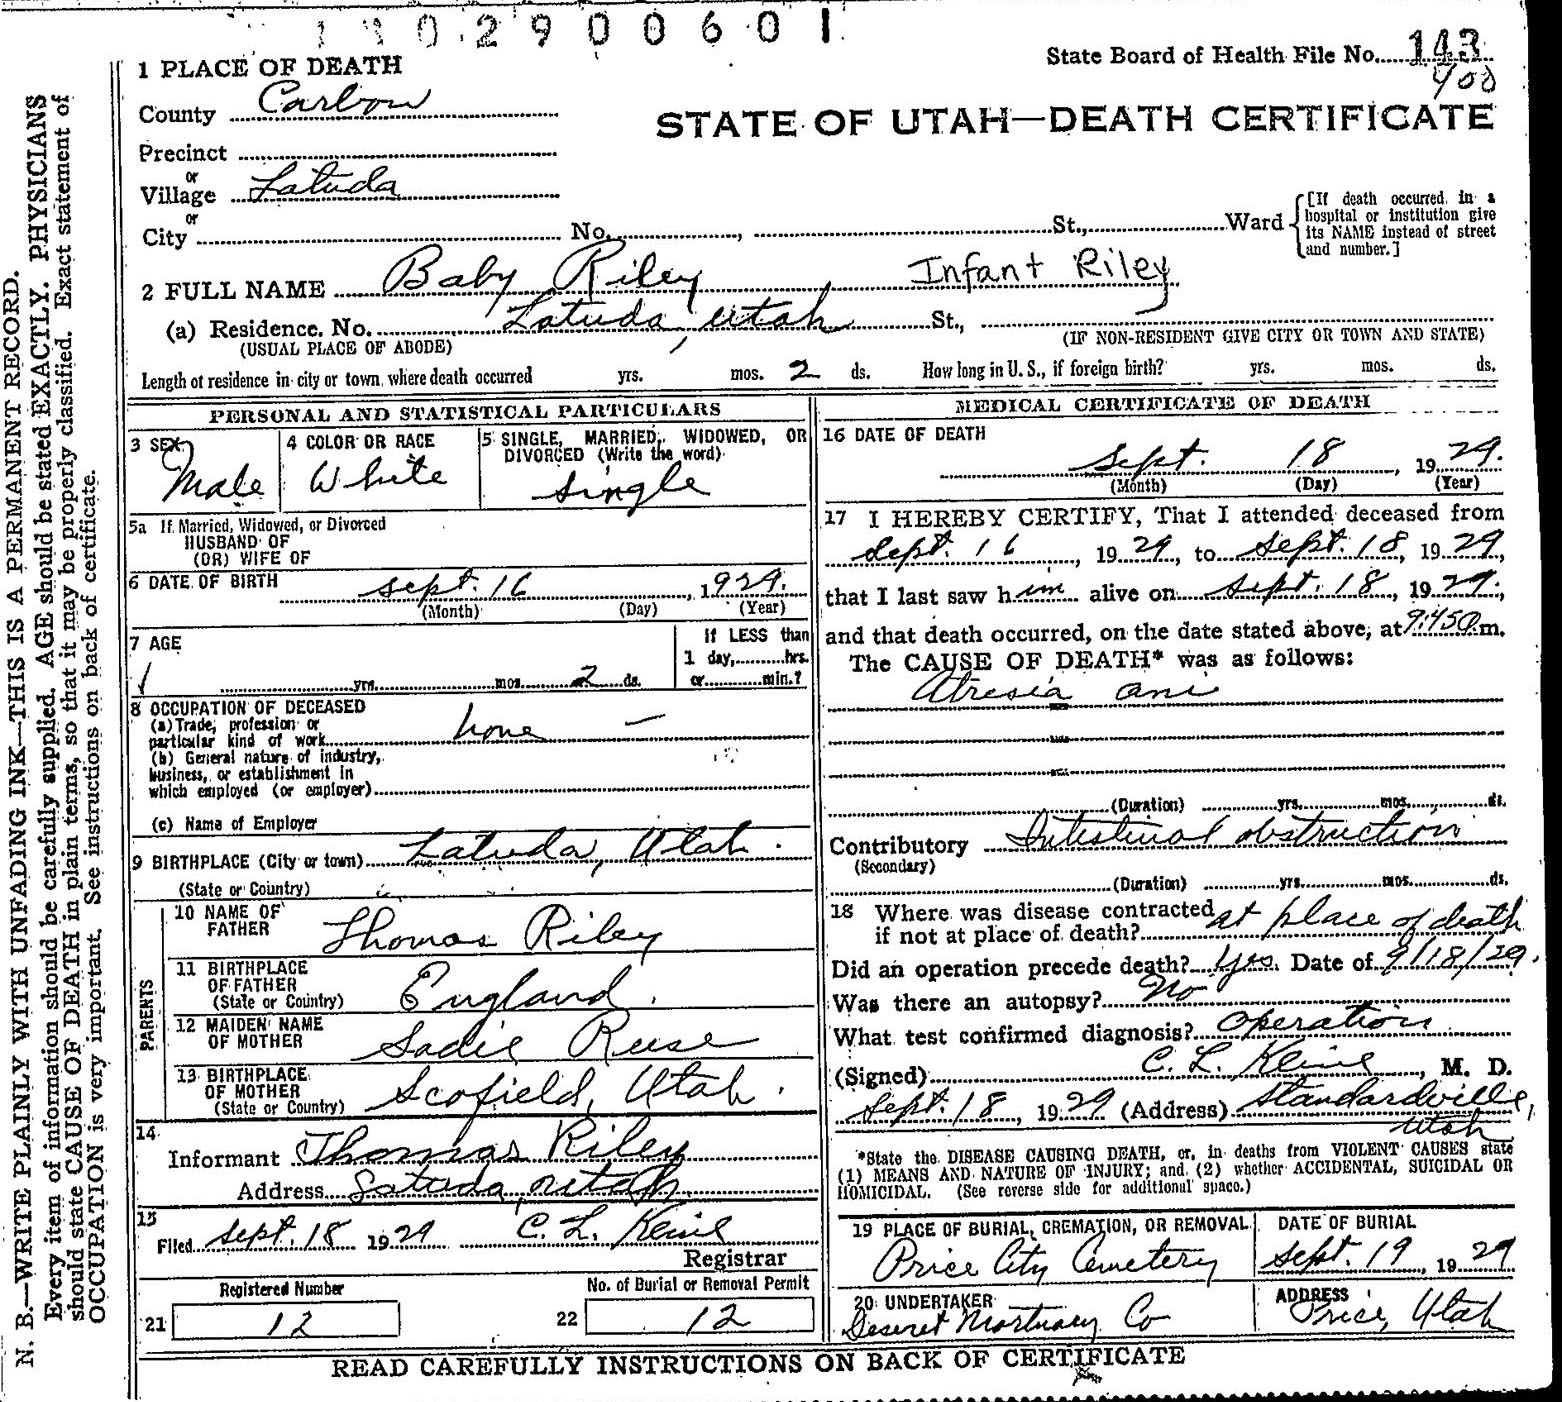 1 1 0 2 9 0 0 6 0 1
State Board of Health File No. 143
400
1 PLACE OF DEATH
County Carbon
STATE OF UTAH—DEATH CERTIFICATE
Precinct
or
Village Latuda
or
City No. , St., Ward
[If death occurred in a hospital or institution give its NAME instead of street and number.]
2 FULL NAME Baby Riley Infant Riley
(a) Residence. No. Latuda, Utah St.,
(USUAL PLACE OF ABODE) (IF NON-RESIDENT GIVE CITY OR TOWN AND STATE)
Length of residence in city or town where death occurred yrs. mos. 2 ds. How long in U. S., if foreign birth? yrs. mos. ds.
PERSONAL AND STATISTICAL PARTICULARS
3 SEX Male
4 COLOR OR RACE White
5 SINGLE, MARRIED, WIDOWED, OR DIVORCED (Write the word) Single
5a If Married, Widowed, or Divorced
HUSBAND OF
(OR) WIFE OF
6 DATE OF BIRTH Sept. 16, 1929.
(Month) (Day) (Year)
7 AGE
yrs. mos. 2 ds.
If LESS than
1 day, hrs.
or min.?
8 OCCUPATION OF DECEASED
(a) Trade, profession or
particular kind of work none —
(b) General nature of industry,
business, or establishment in
which employed (or employer)
(c) Name of Employer
9 BIRTHPLACE (City or town) Latuda, Utah.
(State or Country)
PARENTS
10 NAME OF FATHER Thomas Riley
11 BIRTHPLACE OF FATHER (State or Country) England.
12 MAIDEN NAME OF MOTHER Sadie Reese
13 BIRTHPLACE OF MOTHER (State or Country) Scofield, Utah.
14
Informant Thomas Riley
Address Latuda, Utah
15
Filed Sept. 18 1929 C. L. Keine
Registrar
Registered Number
21 12
No. of Burial or Removal Permit
22 12
MEDICAL CERTIFICATE OF DEATH
16 DATE OF DEATH
Sept. 18, 1929.
(Month) (Day) (Year)
17 I HEREBY CERTIFY, That I attended deceased from
Sept. 16, 1929, to Sept. 18, 1929,
that I last saw him alive on Sept. 18, 1929,
and that death occurred, on the date stated above, at 9:45 p.m.
The CAUSE OF DEATH* was as follows:
Atresia ani
(Duration) yrs. mos. ds.
Contributory Intestinal obstruction
(Secondary)
(Duration) yrs. mos. ds.
18 Where was disease contracted
if not at place of death? at place of death
Did an operation precede death? Yes. Date of 9/18/29.
Was there an autopsy? No
What test confirmed diagnosis? Operation
(Signed) C. L. Keine, M. D.
Sept. 18, 1929 (Address) Standardville,
Utah
*State the DISEASE CAUSING DEATH, or, in deaths from VIOLENT CAUSES state
(1) MEANS AND NATURE OF INJURY; and (2) whether ACCIDENTAL, SUICIDAL OR
HOMICIDAL. (See reverse side for additional space.)
19 PLACE OF BURIAL, CREMATION, OR REMOVAL
Price City Cemetery
DATE OF BURIAL
Sept. 19, 1929
20 UNDERTAKER
Deseret Mortuary Co
ADDRESS
Price, Utah
READ CAREFULLY INSTRUCTIONS ON BACK OF CERTIFICATE
N. B.—WRITE PLAINLY WITH UNFADING INK—THIS IS A PERMANENT RECORD.
Every item of information should be carefully supplied. AGE should be stated EXACTLY. PHYSICIANS
should state CAUSE OF DEATH in plain terms, so that it may be properly classified. Exact statement of
OCCUPATION is very important. See instructions on back of certificate.